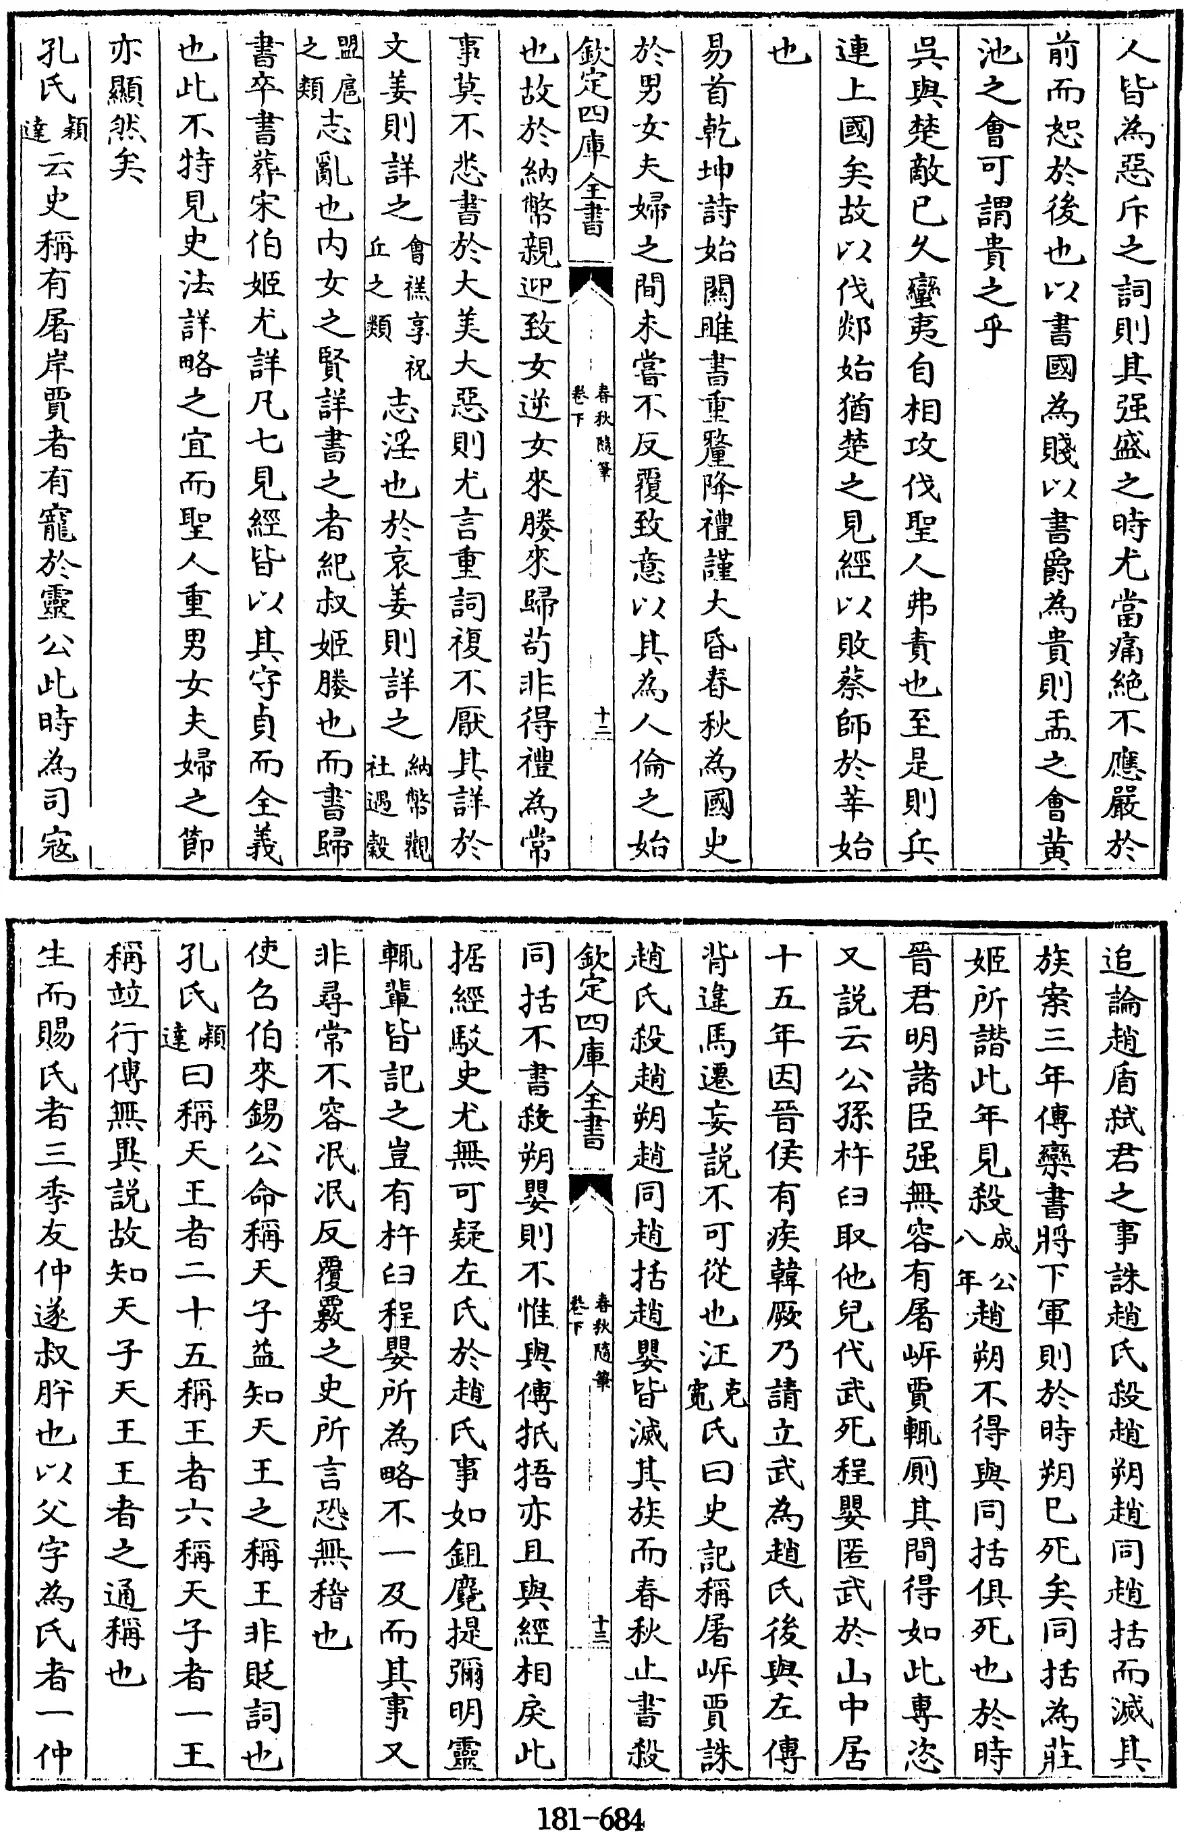 人皆為惡斥之詞則其强盛之時尤當痛絶不應嚴於
前而恕於後也以書國為賤以書爵為貴則盂之會黄
池之會可謂貴之乎
吳與楚敵已久蠻夷自相攻伐聖人弗責也至是則兵
連上國矣故以伐郯始猶楚之見經以敗蔡師於莘始
也
易首乾坤詩始關雎書重釐降禮謹大昏春秋為國史
於男女夫婦之間未嘗不反覆致意以其為人倫之始
欽定四庫全書 春秋隨筆 卷下 十二
也故於納幣親迎致女逆女來媵來歸苟非得禮為常
事莫不悉書於大美大惡則尤言重詞複不厭其詳於
文姜則詳之會禚享祝丘之類志淫也於哀姜則詳之納幣觀社遇穀
盟扈之類志亂也内女之賢詳書之者紀叔姬媵也而書歸
書卒書葬宋伯姬尤詳凡七見經皆以其守貞而全義
也此不特見史法詳略之宜而聖人重男女夫婦之節
亦顯然矣
孔氏穎達云史稱有屠岸賈者有寵於靈公此時為司寇
追論趙盾弑君之事誅趙氏殺趙朔趙同趙括而滅其
族案三年傳欒書將下軍則於時朔已死矣同括為莊
姬所譖此年見殺成公八年趙朔不得與同括俱死也於時
晉君明諸臣强無容有屠岍賈輒厠其間得如此專恣
又説云公孫杵臼取他兒代武死程嬰匿武於山中居
十五年因晉侯有疾韓厥乃請立武為趙氏後與左傳
背違馬遷妄説不可從也汪克寛氏曰史記稱屠岍賈誅
趙氏殺趙朔趙同趙括趙嬰皆滅其族而春秋止書殺
欽定四庫全書 春秋隨筆 卷下 十三
同括不書殺朔嬰則不惟與傳抵牾亦且與經相戾此
据經駁史尤無可疑左氏於趙氏事如鉏麑提彌明靈
輒輩皆記之豈有杵臼程嬰所為略不一及而其事又
非尋常不容泯泯反覆覈之史所言恐無稽也
使召伯來錫公命稱天子益知天王之稱王非貶詞也
孔氏穎達曰稱天王者二十五稱王者六稱天子者一王
稱竝行傳無異説故知天子天王王者之通稱也
生而賜氏者三季友仲遂叔肸也以父字為氏者一仲
181-684